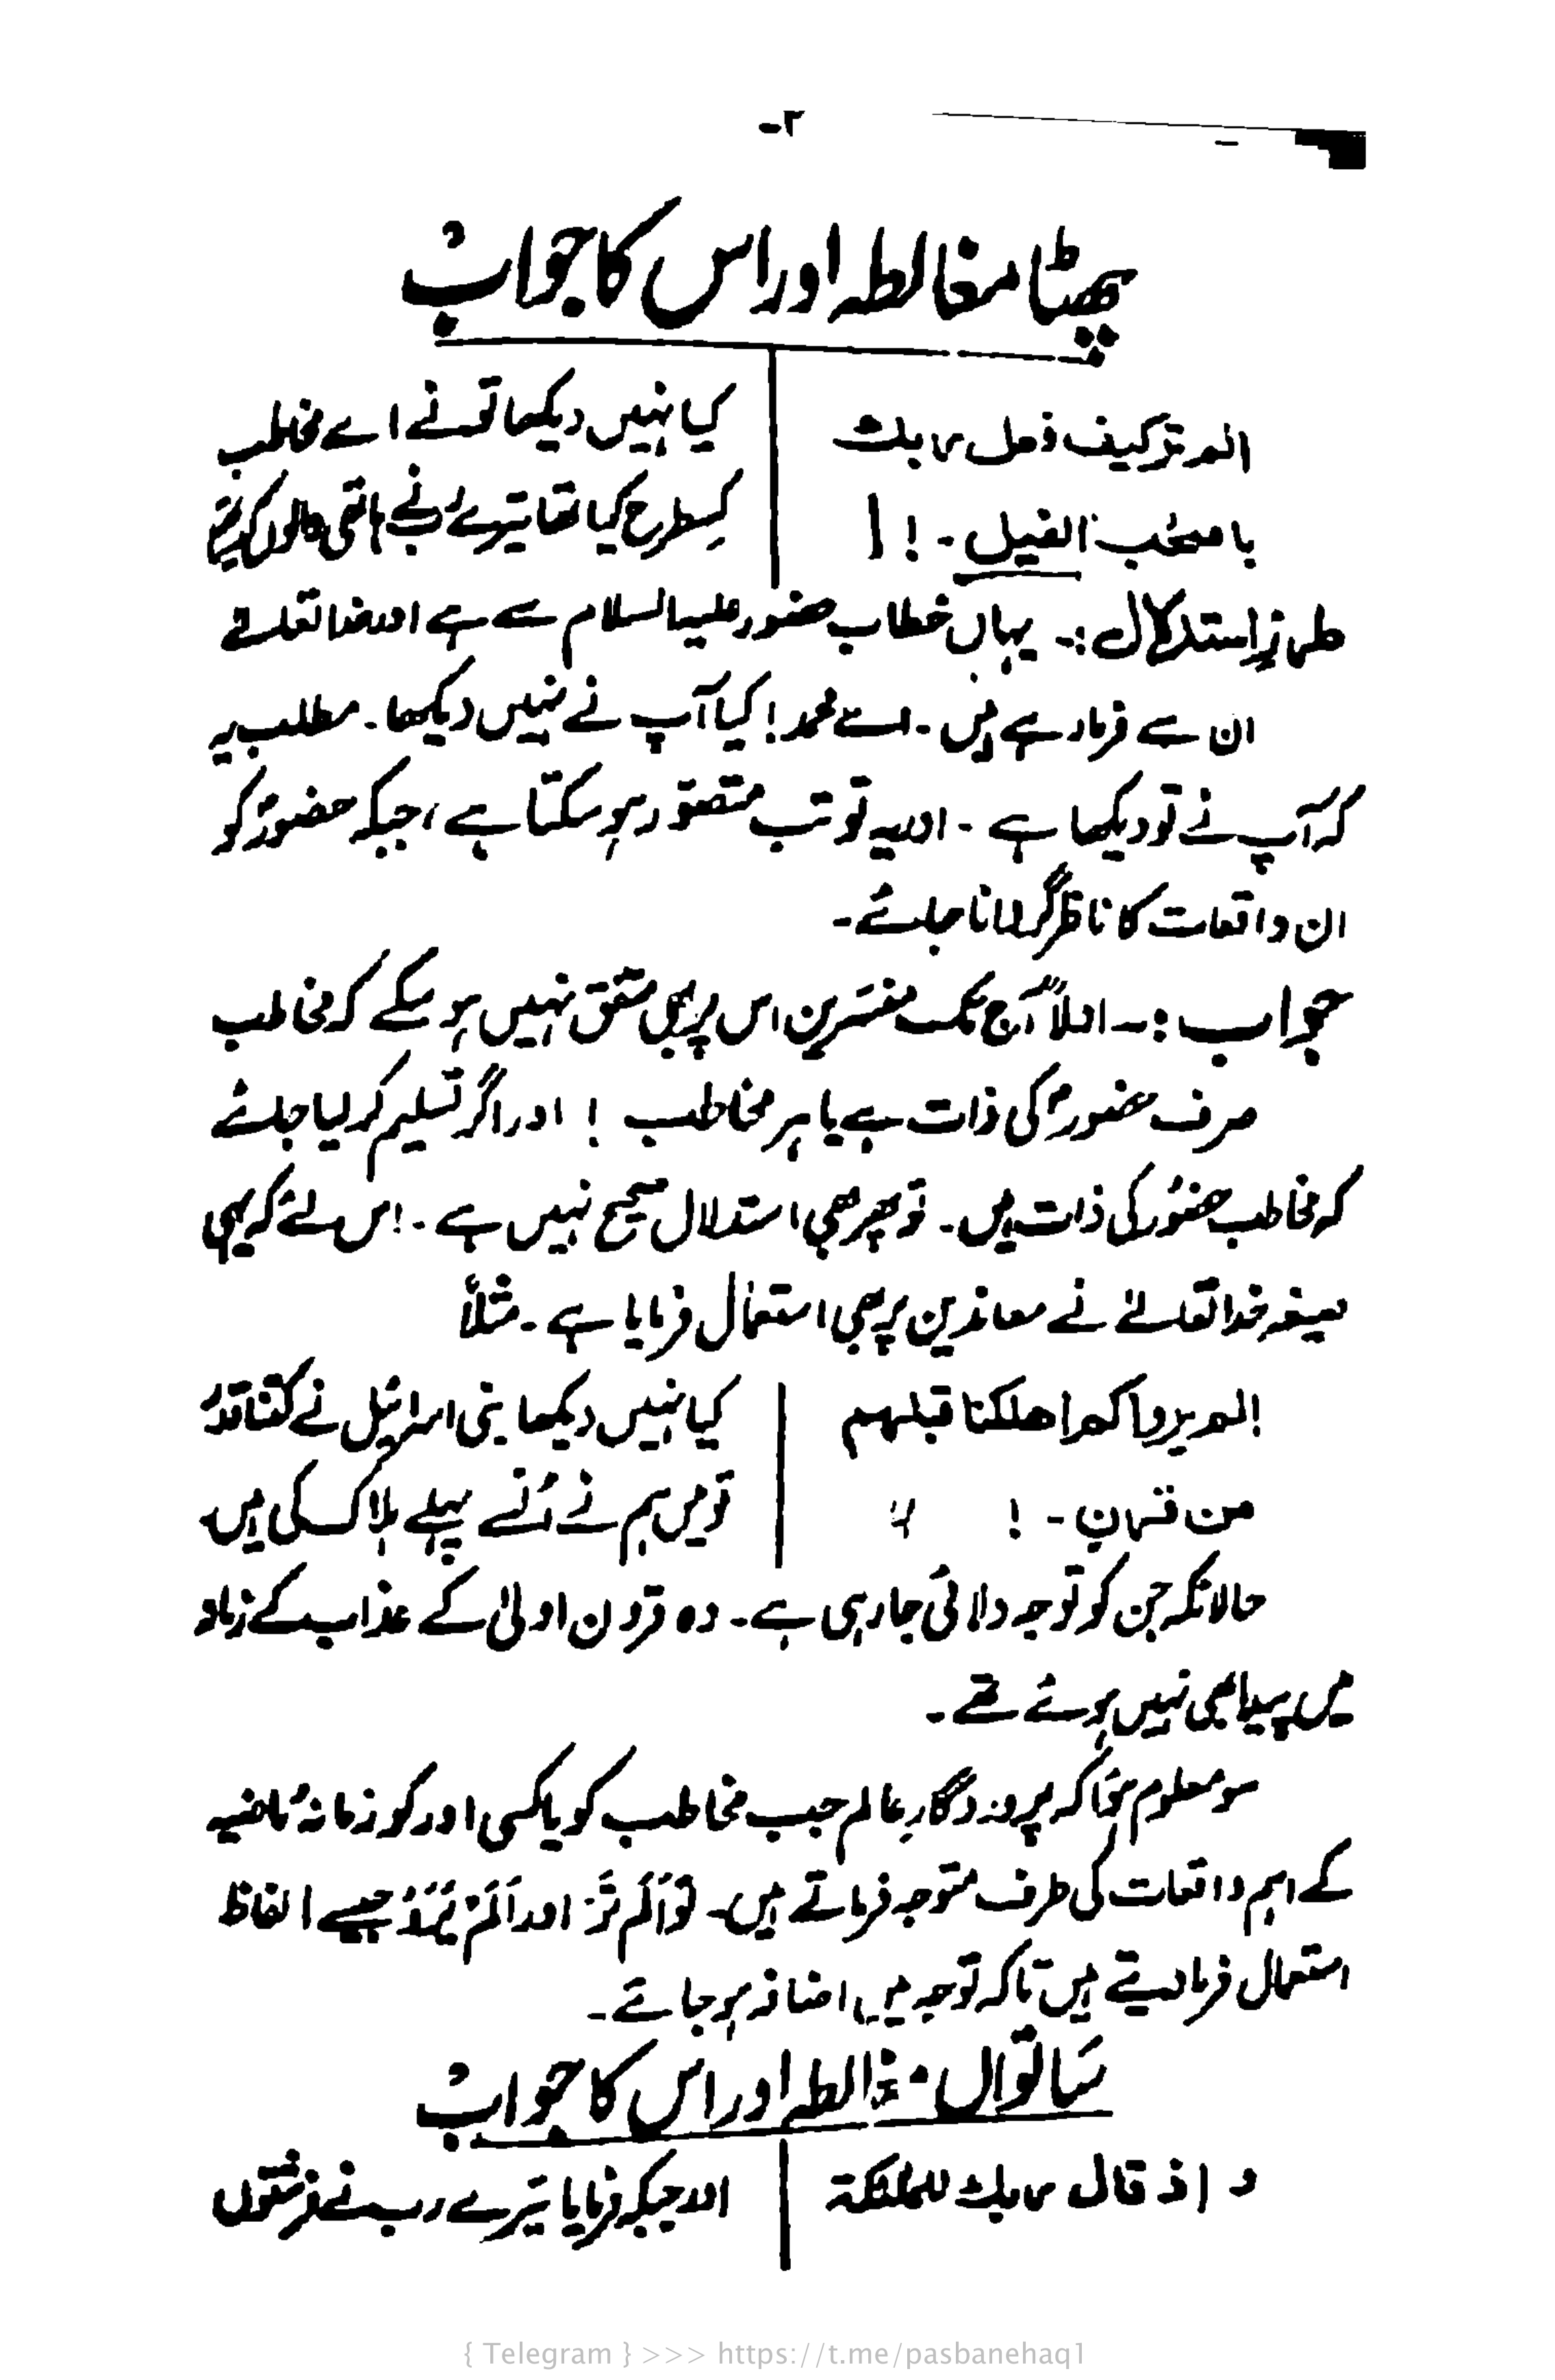 ۲-
چھٹا مغالطہ اور اس کا جواب
الم تر کیف فعل ربک
باصحٰب الفیل - ! ا
کیا نہیں دیکھا تو نے اے مخاطب
کسطرح کیا تھا تیرے رب نے ہاتھی والوں کیساتھ
طرزِ استدلال :- یہاں خطاب حضور علیہ السلام سے ہے اور خدا تعالےٰ
ان سے فرما رہے ہیں - اے محمد ! کیا آپ نے نہیں دیکھا - مطلب یہ
کہ آپ نے تو دیکھا ہے - اور یہ تو تب متصوّر ہو سکتا ہے ، جبکہ حضورؐ کو
ان واقعات کا ناظر گردانا جائے -
جواب :- اولاً آج تک مفسّرین اس پر ہی متفق نہیں ہو سکے کہ مخاطب
صرف حضورؐ کی ذات ہے یا ہر مخاطب ! اور اگر تسلیم کر لیا جائے
کہ مخاطب حضورؐ کی ذات ہیں - تو پھر بھی استدلال صحیح نہیں ہے - اس لئے کہ یہی
صیغہ خدا تعالےٰ نے معاندین پر بھی استعمال فرمایا ہے - مثلاً
الم یروا کم اھلکنا قبلھم
من قرن - !
کیا نہیں دیکھا بنی اسرائیل نے کتنا قدر
قومیں ہم نے اُن سے پہلے ہلاک کی ہیں
حالانکہ جن کو توجہ دلائی جا رہی ہے - وہ قرون اولیٰ کے عذاب کے زمانہ
میں پیدا بھی نہیں ہوئے تھے -
سو معلوم ہوا کہ پروردگارِ عالم جب مخاطب کو یا کسی اور کو زمانۂ ماضیہ
کے اہم واقعات کی طرف متوجہ فرماتے ہیں - تو اَلَم تَرَ اور اَلَمْ یَرَوْا جیسے الفاظ
استعمال فرما دیتے ہیں تاکہ توجہ میں اضافہ ہو جائے -
ساتواں مغالطہ اور اس کا جواب
و اذ قال ربک للملٰئکۃ
اور جبکہ فرمایا تیرے رب نے فرشتوں
{ Telegram } >>> https://t.me/pasbanehaq1